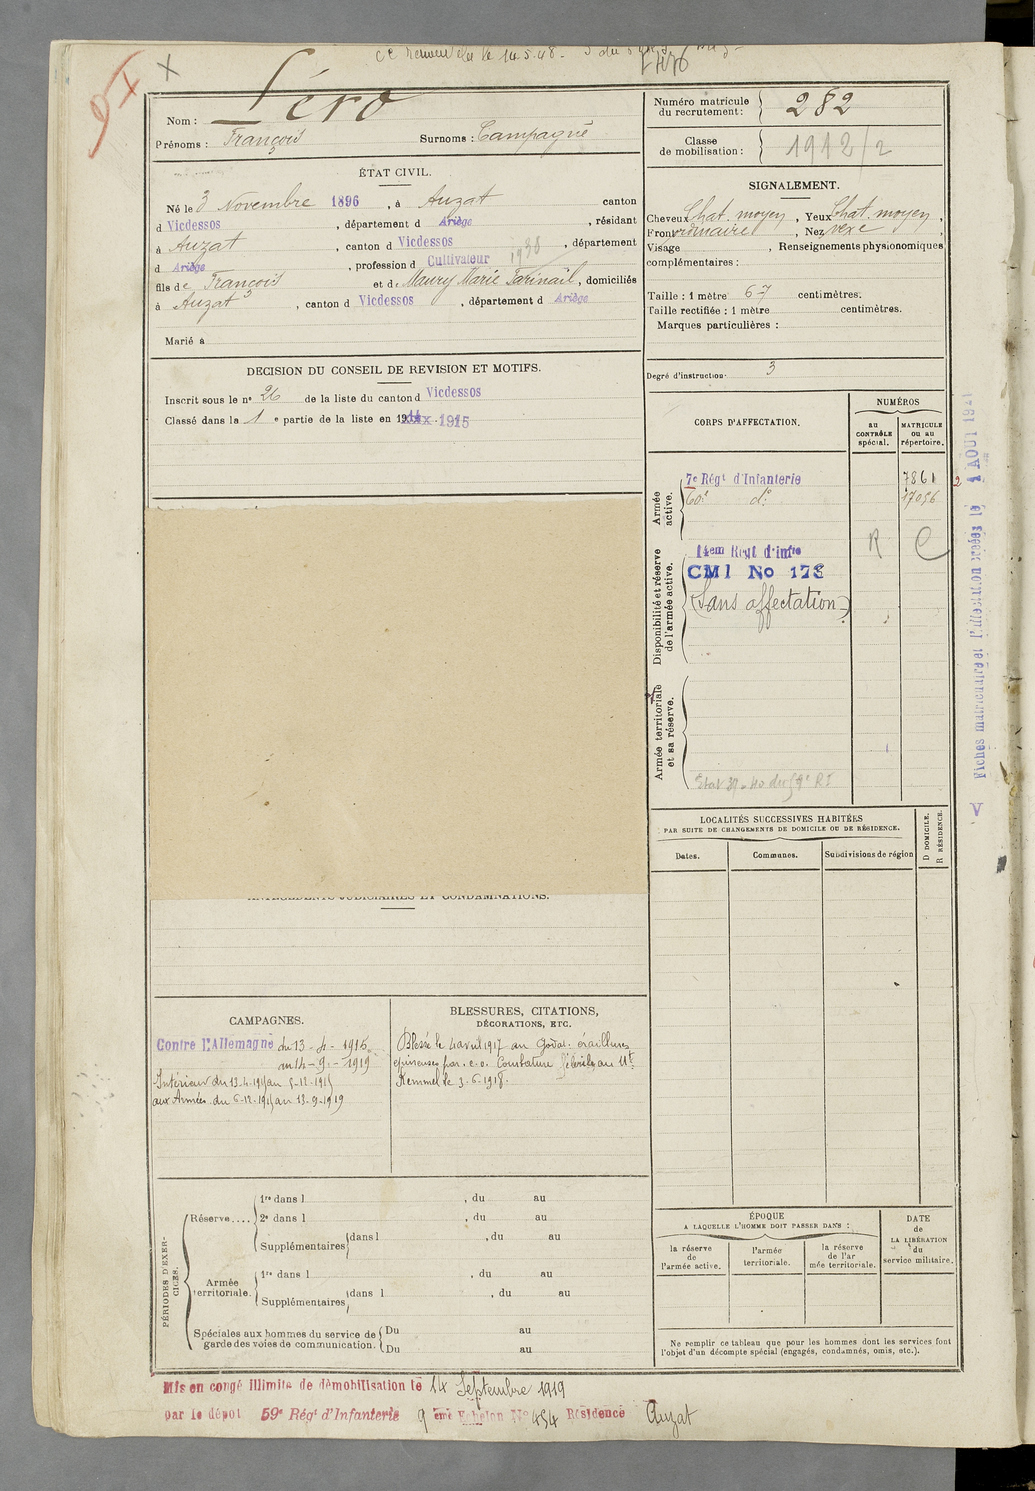 Nom : Léro
Prénoms : François Surnoms : Campagne
Numéro matricule du recrutement : 282
Classe de mobilisation : 1912/2
ÉTAT CIVIL.
Né le 3 Novembre 1896, à Auzat canton
d Vicdessos, département d Ariège, résidant
à Auzat, canton d Vicdessos, département
d Ariège, profession d Cultivateur 1938
fils de François et de Maury Marie, domiciliés
à Auzat, canton d Vicdessos, département d Ariège
Marié à
SIGNALEMENT.
Cheveux Chat. moyen, Yeux Chat. moyen,
Front ordinaire, Nez vexe,
Visage , Renseignements physionomiques
complémentaires :
Taille : 1 mètre 67 centimètres.
Taille rectifiée : 1 mètre centimètres.
Marques particulières :
Degré d'instruction. 3
DECISION DU CONSEIL DE REVISION ET MOTIFS.
Inscrit sous le nº 26 de la liste du canton d Vicdessos
Classé dans la 1 e partie de la liste en 1915
CORPS D'AFFECTATION.
NUMÉROS
au CONTRÔLE spécial.
MATRICULE ou au répertoire.
Armée active.
7e Régt d'Infanterie 7861
60e dº 17056
Disponibilité et réserve de l'armée active.
14em Regt d'infie R C
CMI No 178
(Sans affectation)
Armée territoriale et sa réserve.
Fiches matricule et
V
LOCALITÉS SUCCESSIVES HABITÉES
PAR SUITE DE CHANGEMENTS DE DOMICILE OU DE RÉSIDENCE.
Dates.
Communes.
Subdivisions de région
D DOMICILE.
R RÉSIDENCE.
ANTÉCÉDENTS JUDICIAIRES ET CONDAMNATIONS.
CAMPAGNES.
Contre l'Allemagne du 13-4-1915
au 14-9-1919
Intérieur du 13.4.1915 au 5-12-1915
aux Armées du 6-12-1915 au 13-9-1919
BLESSURES, CITATIONS,
DÉCORATIONS, ETC.
Blessé le 4 avril 1917 au Godat. éraillures
par é.o. au Mt
Kemmel le 3.6.1918.
PÉRIODES D'EXERCICES.
Réserve....
1re dans l , du au
2e dans l , du au
Supplémentaires dans l , du au
Armée territoriale.
1re dans l , du au
Supplémentaires dans l , du au
Spéciales aux hommes du service de garde des voies de communication.
Du au
Du au
ÉPOQUE
A LAQUELLE L'HOMME DOIT PASSER DANS :
la réserve de l'armée active.
l'armée territoriale.
la réserve de l'armée territoriale.
DATE de LA LIBÉRATION du service militaire.
Ne remplir ce tableau que pour les hommes dont les services font
l'objet d'un décompte spécial (engagés, condamnés, omis, etc.).
Mis en congé illimité de démobilisation le 14 Septembre 1919
par le dépôt 59e Régt d'Infanterie 9 ème Echelon Nº 454 Résidence Auzat